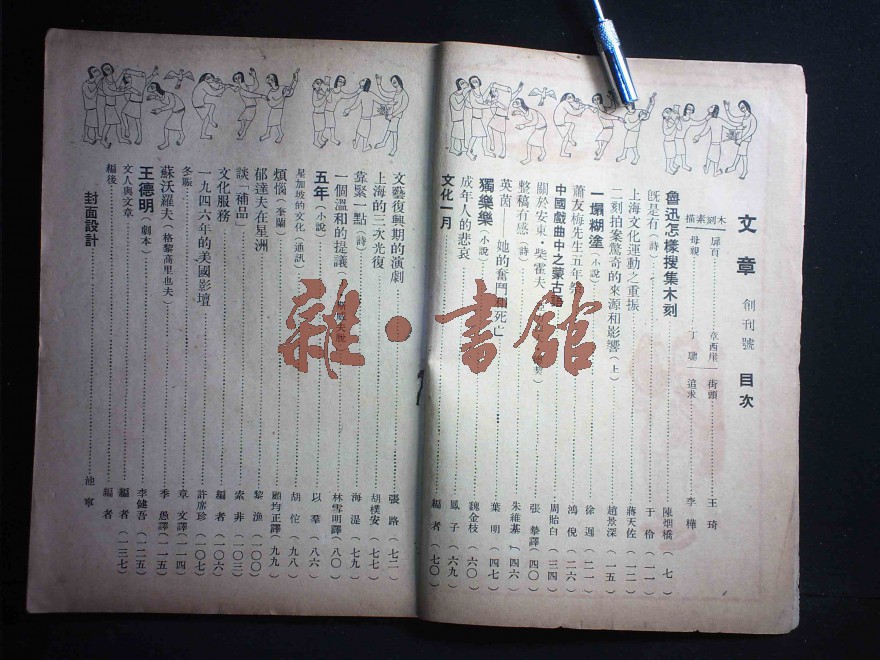 文章 創刊號 目次
木刻素描
扉頁……章西崖
街頭……王琦
母親……丁聰
追求……李樺
魯迅怎樣搜集木刻……陳烟橋（七）
旣是有（詩）……于伶（一一）
上海文化運動之重振……蔣天佐（一二）
二刻拍案驚奇的來源和影響（上）……趙景深（一五）
一塌糊塗（小說）……徐遲（二一）
蕭友梅先生五年祭……鴻倪（二六）
中國戲曲中之蒙古語……周貽白（三四）
關於安東·柴霍夫……張摯譯（四〇）
整稿有感（詩）……朱維基（四六）
英茵——她的奮鬥和死亡……葉明（四七）
獨樂樂（小說）……魏金枝（六〇）
成年人的悲哀……鳳子（六九）
文化一月……編者（七〇）
文藝復興期的演劇……張路（七二）
上海的三次光復……胡樸安（七七）
靠緊一點（詩）……海湜（七九）
一個溫和的提議……林雪明譯（八〇）
五年（小說）……以羣（八六）
星加坡的文化（通訊）……胡佗（九八）
煩惱（奎寧）……顧均正譯（九九）
郁達夫在星洲……黎漁（一〇〇）
談「補品」……索非（一〇三）
文化服務……編者（一〇六）
一九四六年的美國影壇……許席珍（一〇七）
冬賑……章文譯（一一四）
蘇沃羅夫（格黎高里也夫）……季愚譯（一一五）
王德明（劇本）……李健吾（一二五）
文人與文章……編者（一三七）
編後……編者
封面設計……池寧
雜·書館